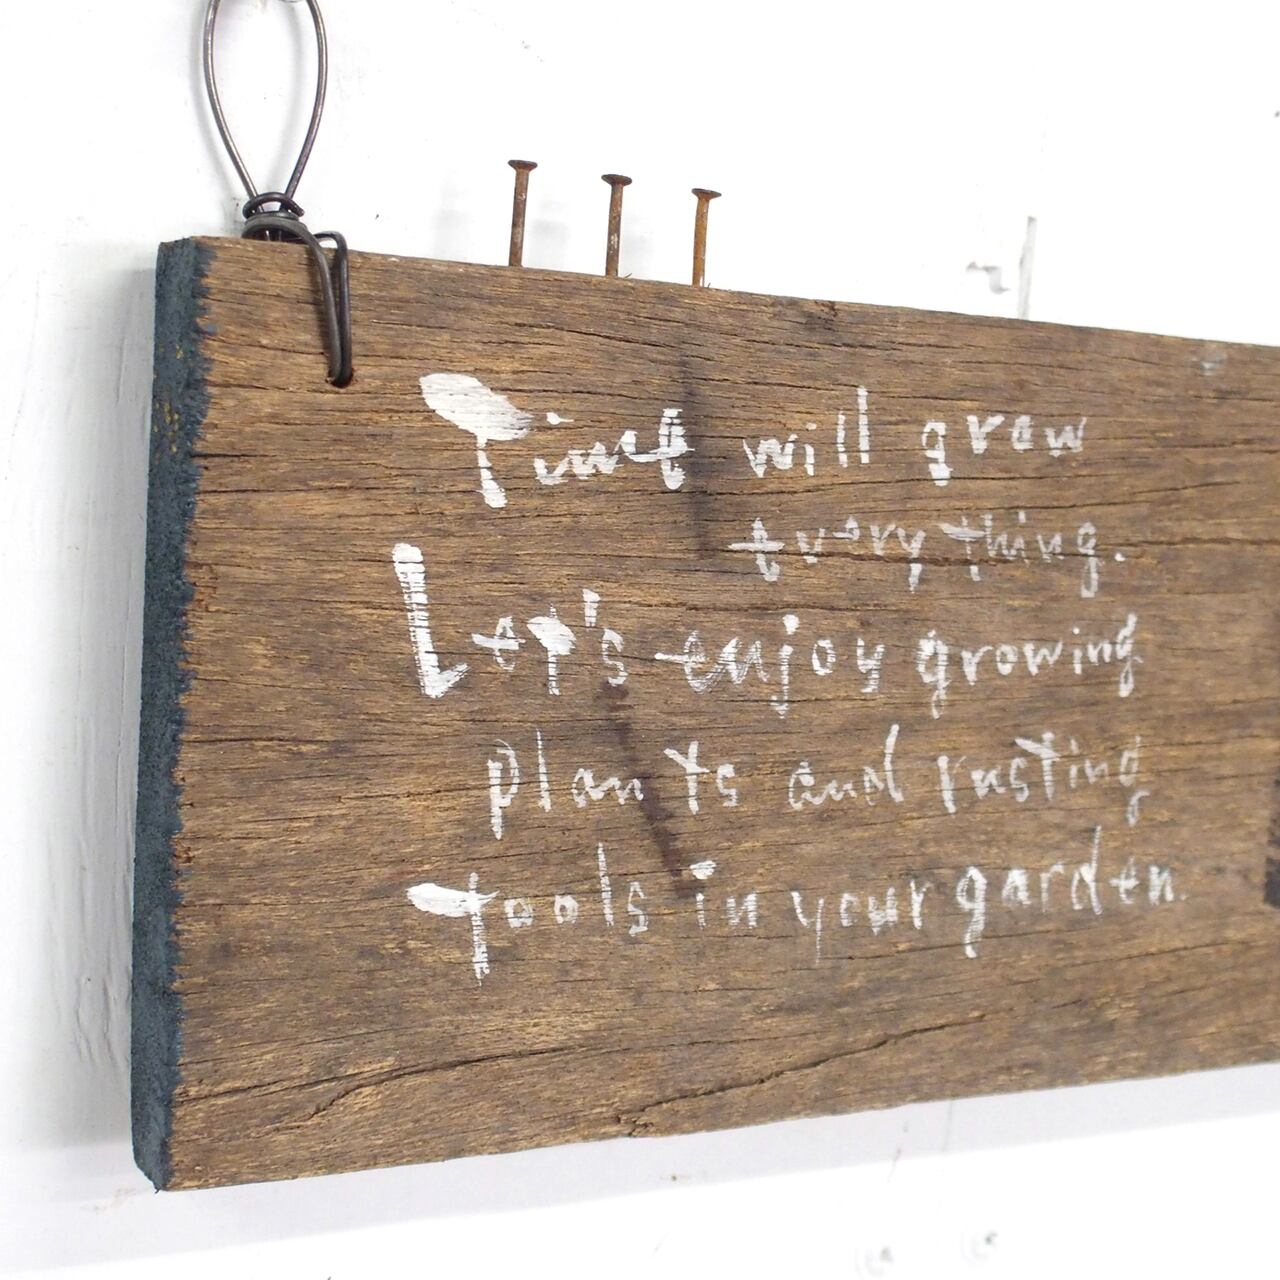 Time will graw
everything.
Let's enjoy growing
plants and rusting
tools in your garden.